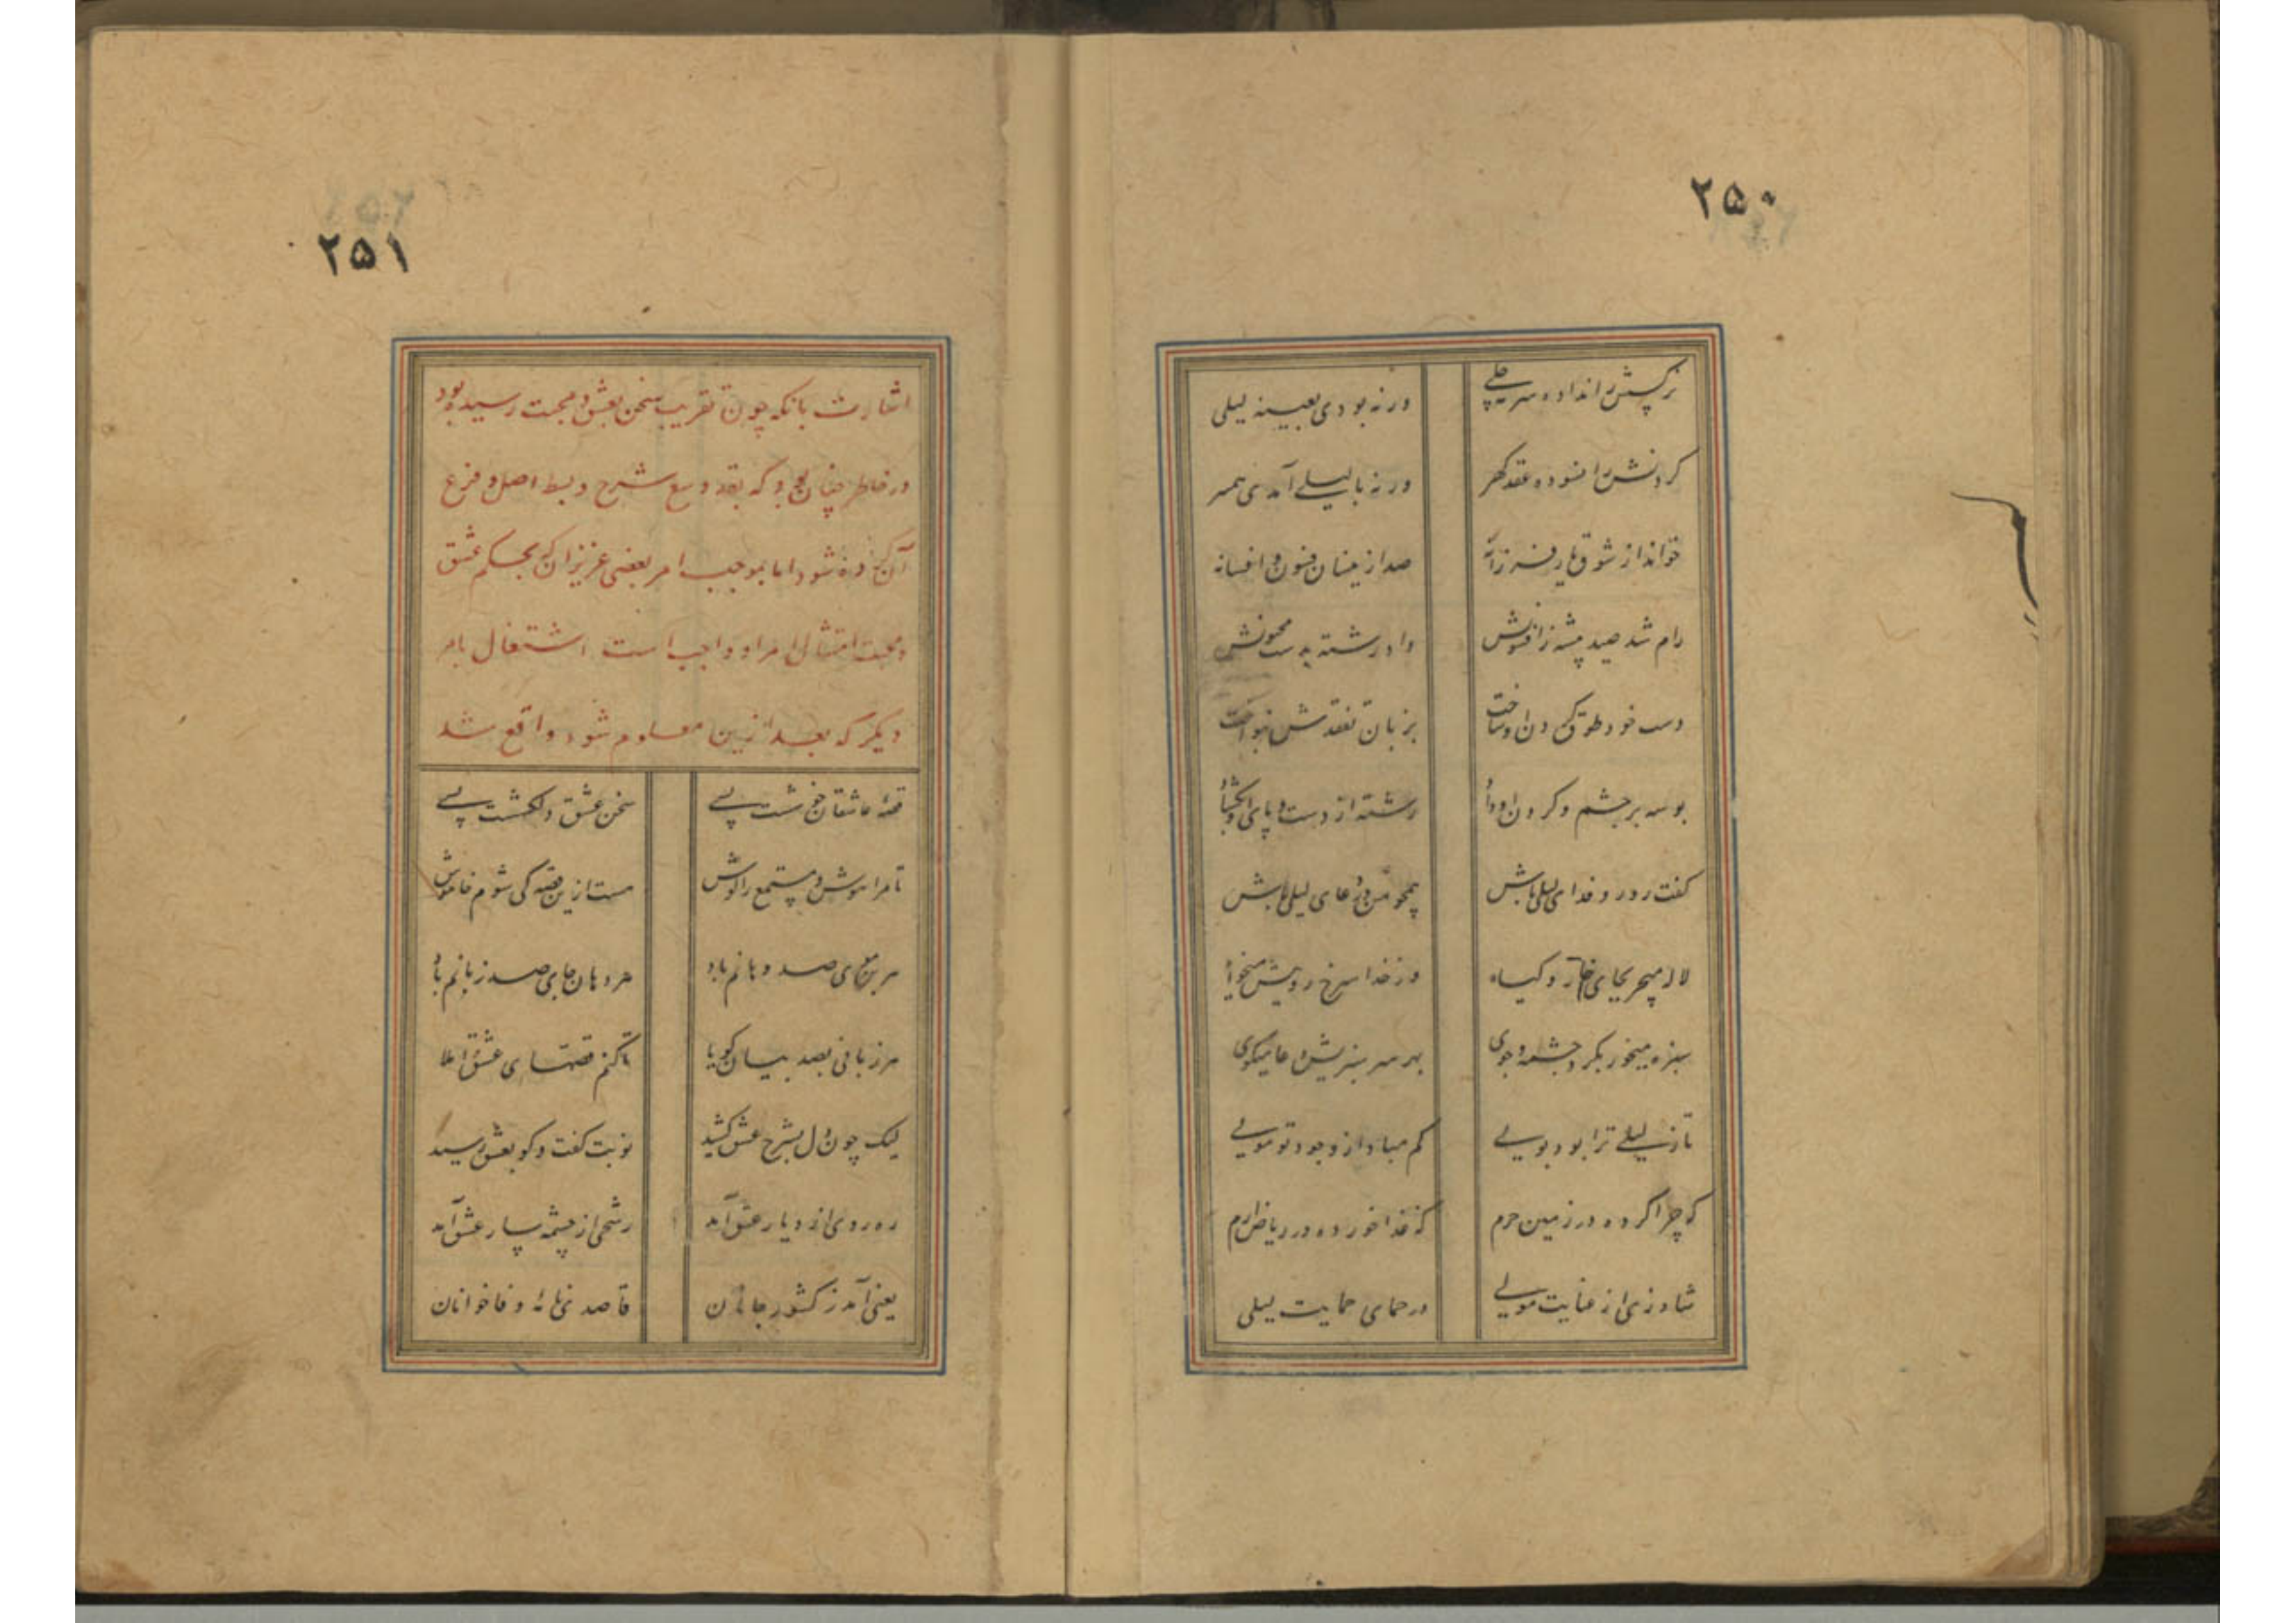 ۲۵۰
نرگسش را نداده سرمه جلی
ورنه بودی بعینه لیلی
گردنش را فسوده عقد گهر
ورنه با لیلی آمدی همسر
خواند از شوق یار فرزانه
صد ازینسان فسون و افسانه
رام شد صید پیشه ز افسونش
داد رشته به دست مجنونش
دست خود طوق گردن او ساخت
بزبان تفقدش بنواخت
بوسه بر چشم و گردن او داد
رشته از دست و پای او بگشاد
گفت رو رو فدای لیلی باش
همچو من در دعای لیلی باش
لاله میچر بجای خار و گیاه
وز خدا سرخ روییش میخواه
سبزه میخور بگرد چشمه و جوی
بهر سر سبزیش دعا میگوی
تا ز لیلی ترا بود بویی
کم مبادا از وجود تو مویی
که چرا کرده در زمین حرم
که غذا خورده در ریاض ارم
شاد زی از عنایت مولی
در حمای حمایت لیلی
۲۵۱
اشارت بانکه چون تقریب سخن بعشق و محبت رسیده بود
در خاطر چنان بود که بقدر وسع شرح و بسط اصل و فرع
آن کرده شود اما بموجب امر بعضی عزیزان که بحکم عشق
و محبت امتثال امر او واجب است اشتغال بامر
دیگر که بعد ازین معلوم شود واقع شد
قصهٔ عاشقان خوشست بسی
سخن عشق دلکشست بسی
تا مرا هوش و مستمع را گوش
هست ازین قصه کی شوم خاموش
هر بن موی صد دهانم باد
هر دهان جای صد زبانم باد
هر زبانی بصد بیان گویا
تا کنم قصهای عشق املا
لیک چون دل بشرح عشق کشید
نوبت گفت و گو بعشق رسید
ره روی از دیار عشق آمد
رشحی از چشمه سار عشق آمد
یعنی آمد ز کشور جانان
قاصدی نامهٔ وفا خوانان